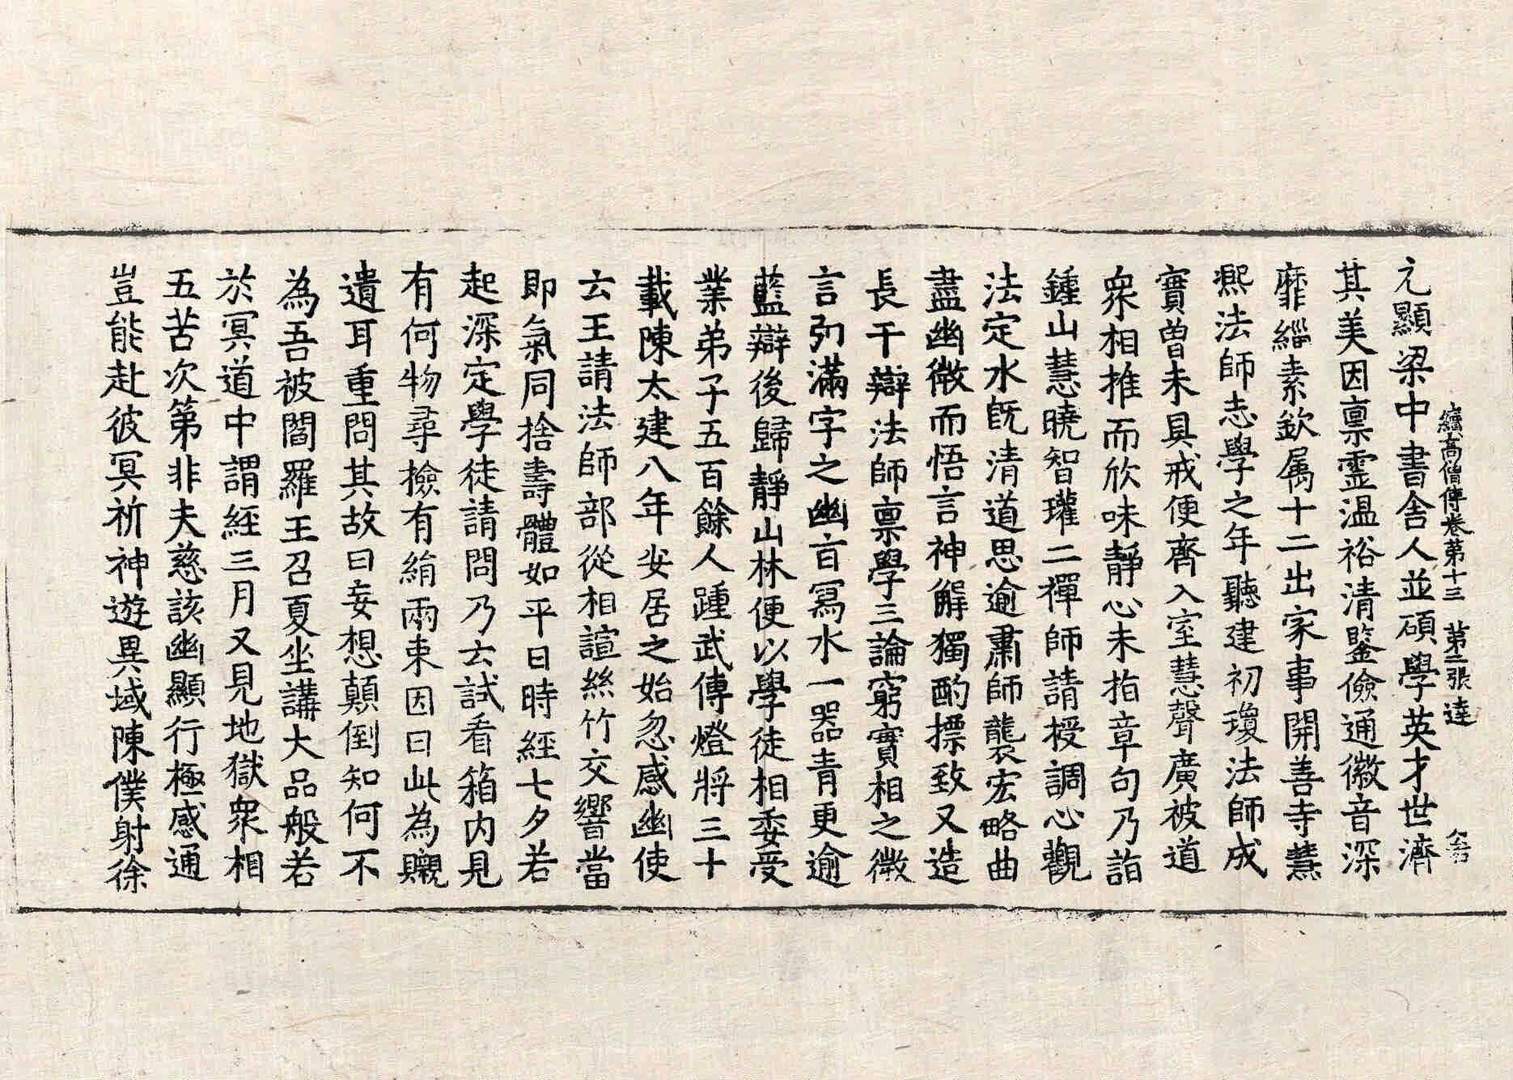 續高僧傳卷第十三 第二張 達
元顯梁中書舍人並碩學英才世濟
其美因稟靈溫裕清鑒儉通徽音深
靡緇素欽属十二出家事開善寺慧
熈法師志學之年聽建初瓊法師成
實曽未具戒便齊入室慧聲廣被道
衆相推而欣味靜心未指章句乃詣
鍾山慧曉智瓘二禪師請授調心觀
法定水旣清道思逾肅師襲宏略曲
盡幽微而悟言神解獨酌摽致又造
長干辯法師稟學三論窮實相之微
言弘滿字之幽旨冩水一器青更逾
藍辯後歸靜山林便以學徒相委受
業弟子五百餘人踵武傳燈將三十
載陳太建八年安居之始忽感幽使
云王請法師部從相諠絲竹交響當
即氣同捨壽體如平日時經七夕若
起深定學徒請問乃云試看箱内見
有何物尋檢有絹兩束因曰此為䞋
遺耳重問其故曰妄想顛倒知何不
為吾被閻羅王召夏坐講大品般若
於冥道中謂經三月又見地獄衆相
五苦次第非夫慈該幽顯行極感通
豈能赴彼冥祈神遊異域陳僕射徐